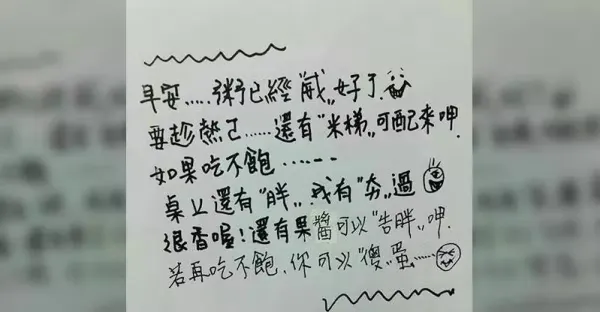 早安.....粥已經"威"好了.
要趁熱ㄛ.....還有"米梯"可配來呷.
如果吃不飽......
桌上還有"胖".我有"夯"過
很香喔!還有果醬可以"告胖"呷.
若再吃不飽.你可以"傻"蛋.....